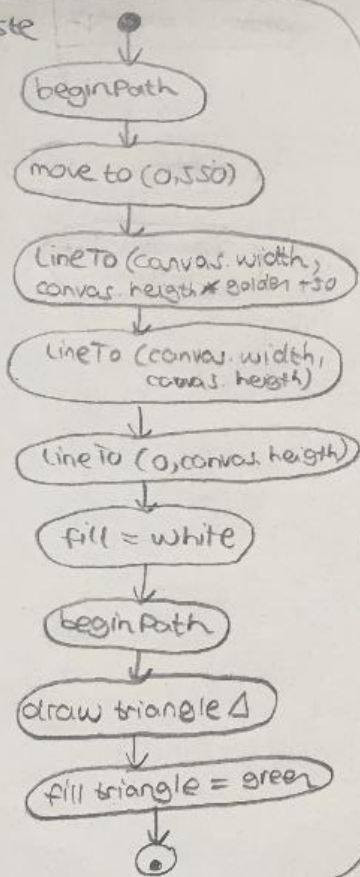 beginPath
move to (0,550)
LineTo (canvas.width,
canvas.heigth * golden +50
LineTo (canvas.width,
canvas.heigth)
LineTo (0,canvas.heigth)
fill = white
beginPath
draw triangle Δ
fill triangle = green